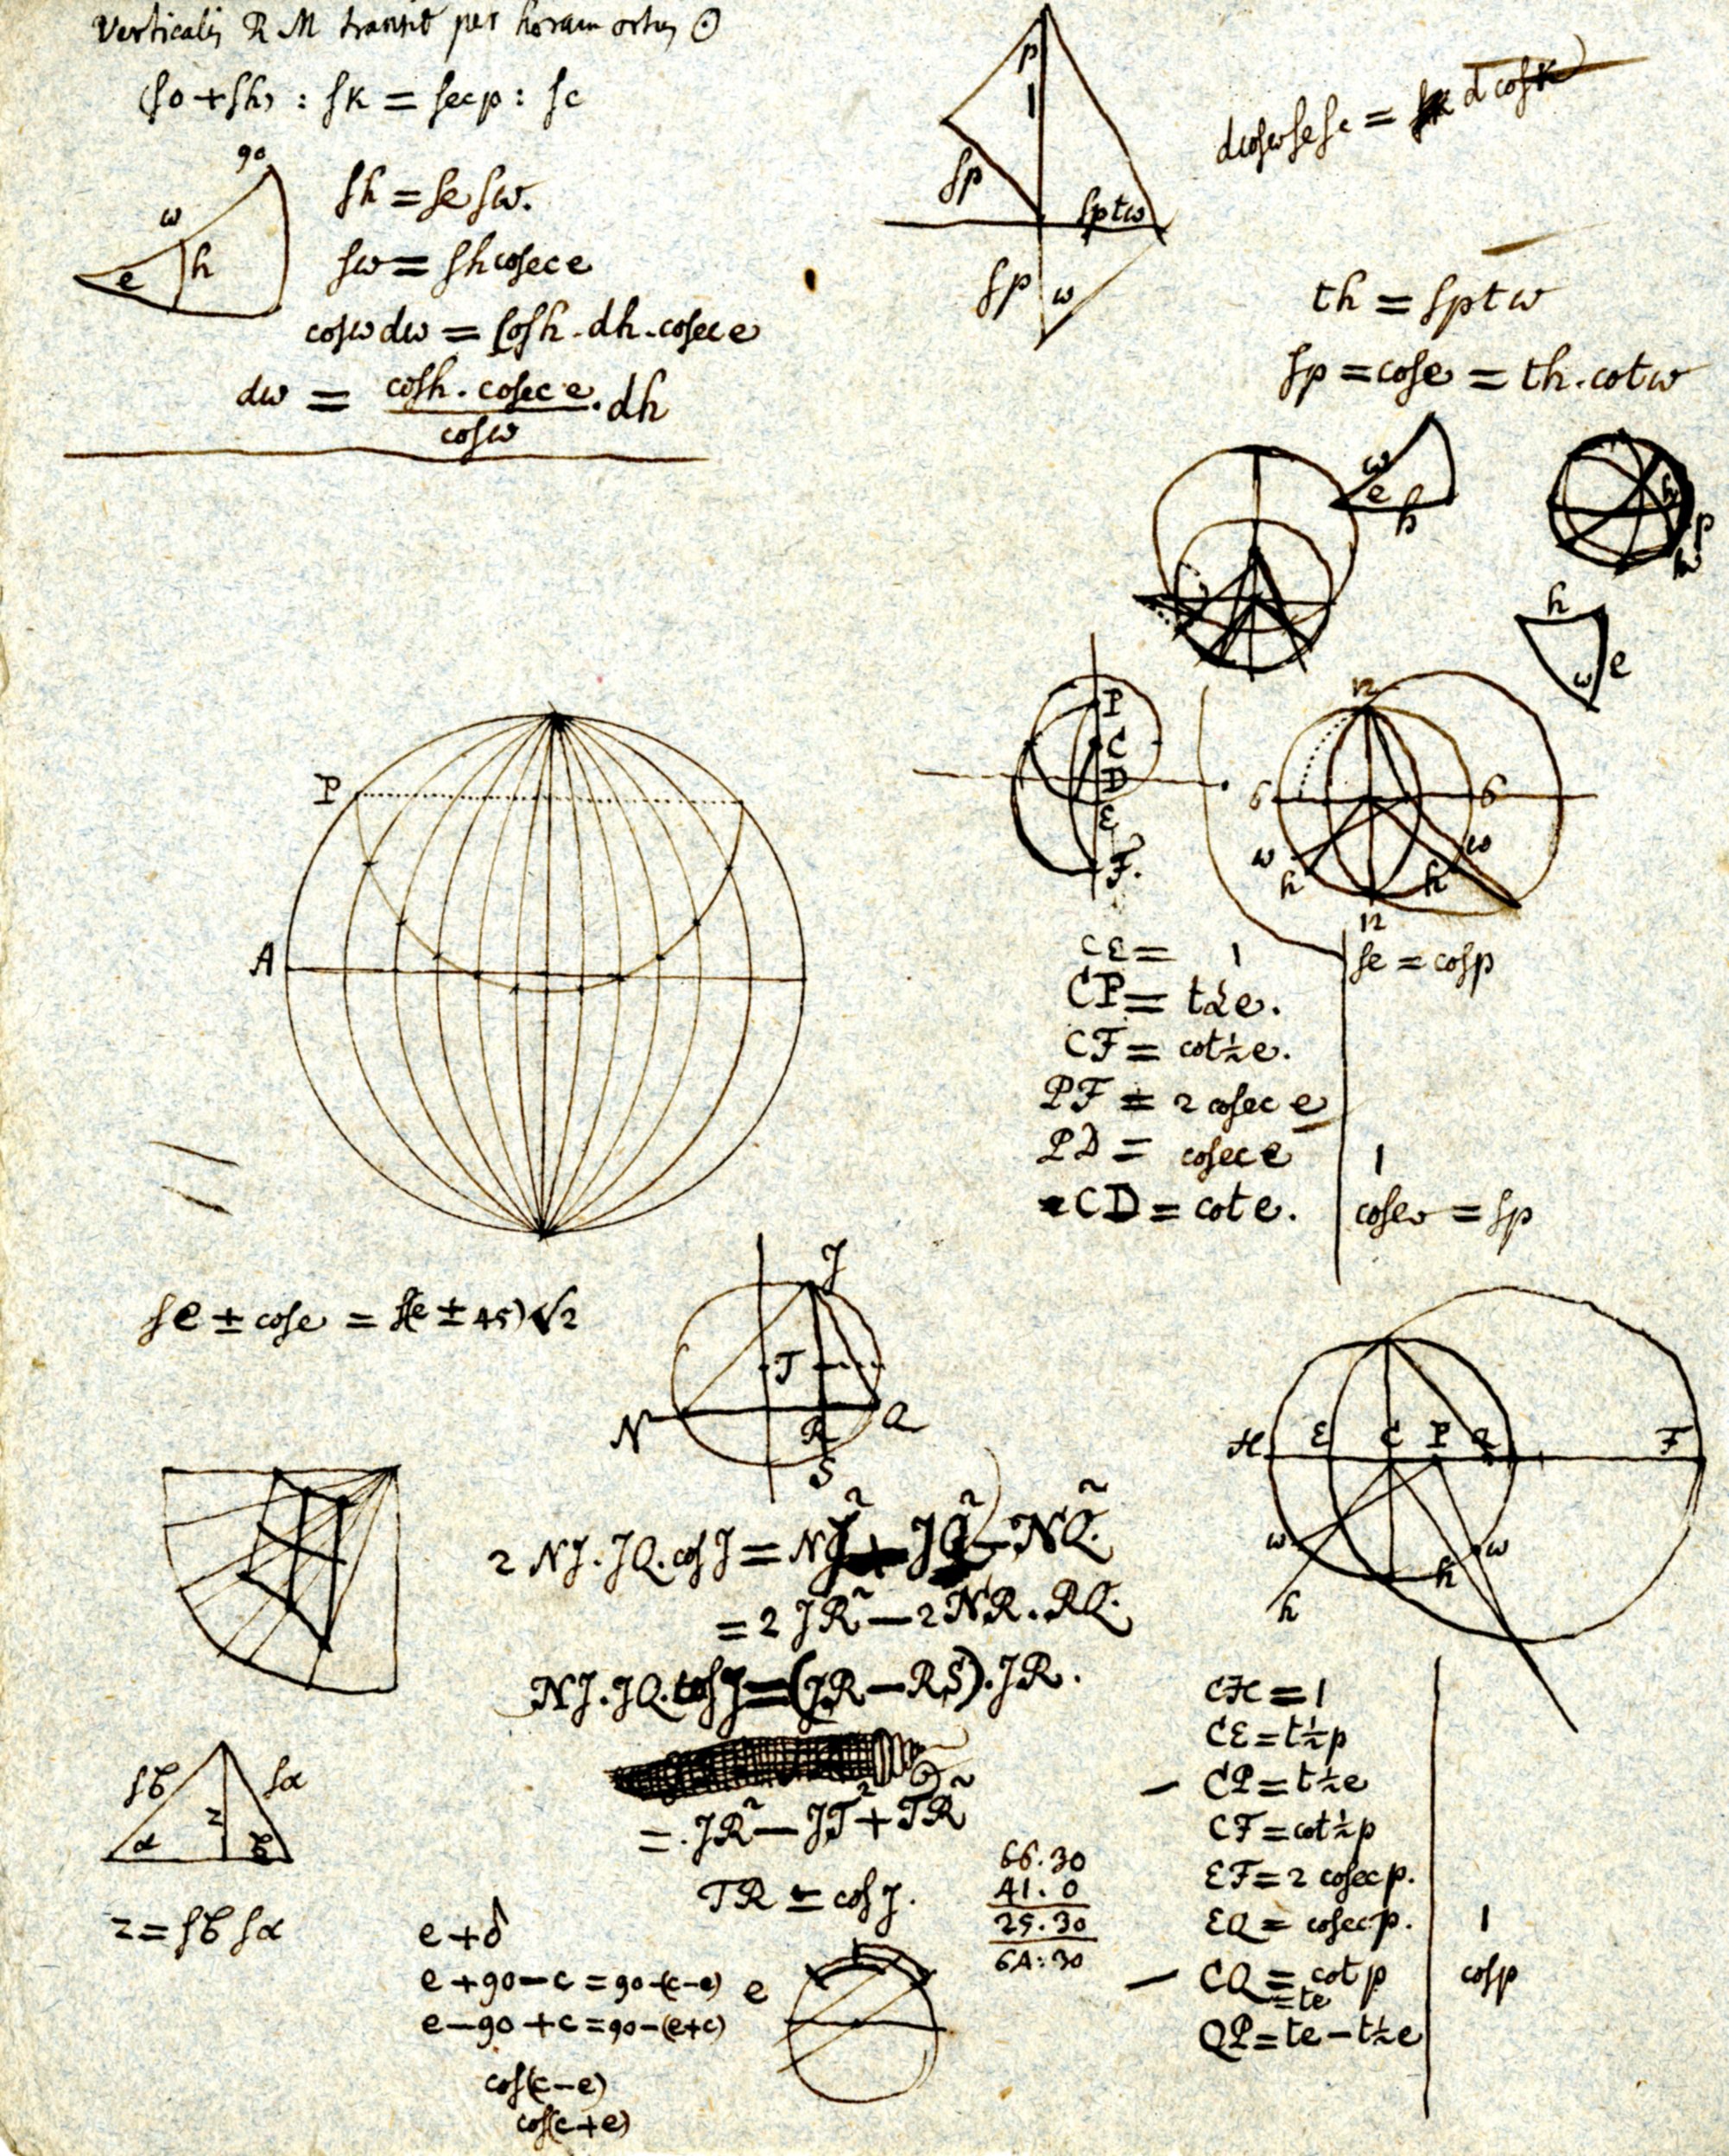 Verticalis R M transit per horam ortus ☉
(ſo + ſh) : ſK = ſec p : ſc
90
ω
e
h
ſh = ſe ſω.
ſω = ſh coſec e
coſω dω = coſh . dh . coſec e
dω = coſh . coſec e / coſω . dh
p
1
ſp
ſptω
ſp
ω
dcoſω ſe ſc = d coſK
th = ſptω
ſp = coſe = th . cotω
ω
e
h
h
p
ω
h
e
ω
P
C
D
E
F.
12
6
6
ω
h
ω
h
12
P
A
CE = 1
CP = t½e.
CF = cot½e.
PF = 2 coſec e
PD = coſec e
CD = cot e.
ſe = coſp
1
coſe = ſp
ſe ± coſe = ſ(e ± 45)√2
J
T
N
R
Q
S
H
E
C
P
Q
F
ω
h
h
ω
2 NJ . JQ . coſ J = NJ² + JQ² − NQ².
= 2 JR² − 2 NR . RQ.
NJ . JQ . coſ J = (JR − RS) . JR.
= . JR² − JT² + TR²
TR = coſ J.
ſϐ
ſα
z
α
ϐ
z = ſϐ ſα
e + δ
e + 90 − c = 90 − (c − e)
e − 90 + c = 90 − (e + c)
coſ(c − e)
coſ(c + e)
e
66.30
41.0
25.30
64:30
CH = 1
CE = t½p
− CP = t½e
CF = cot½p
EF = 2 coſec p.
EQ = coſec p.
1
− CQ = cot p
= te
coſp
QP = te − t½e